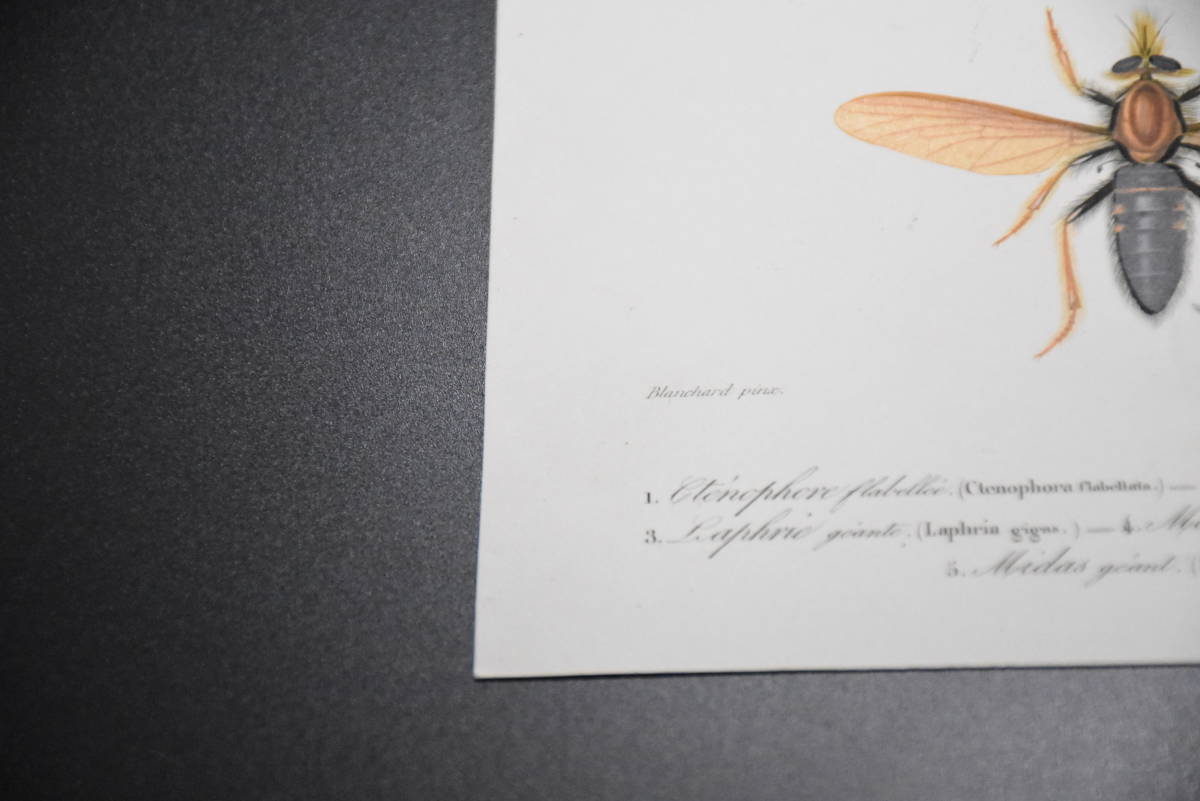 Blanchard pinx.
1. Cténophore flabellée. (Ctenophora flabellata.) —
3. Laphrie géante. (Laphria gigas.) — 4. M
5. Midas géant. (